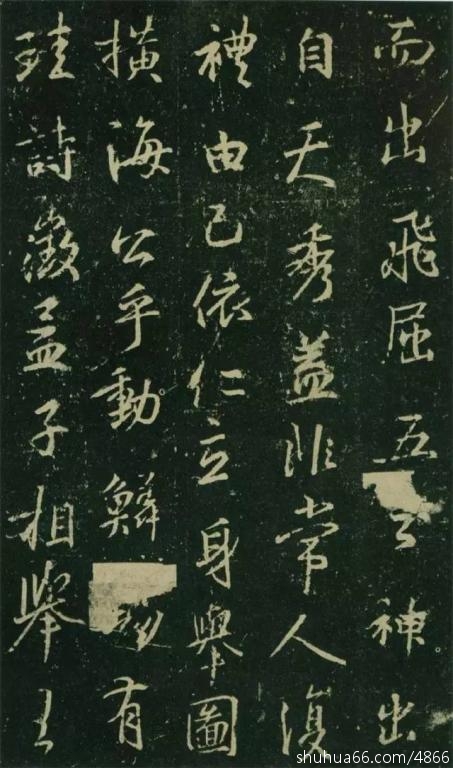 而出飛屈五神出
自天秀蓋非常人復
禮由己依仁立身舉圖
橫海公乎動鱗有
珪詩徵孟子相舉
shuhua66.com/4866